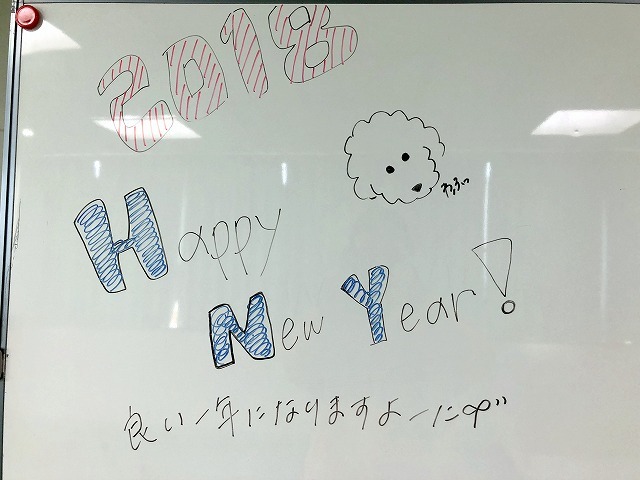 2018
Happy
New Year!
良い一年になりますよーに